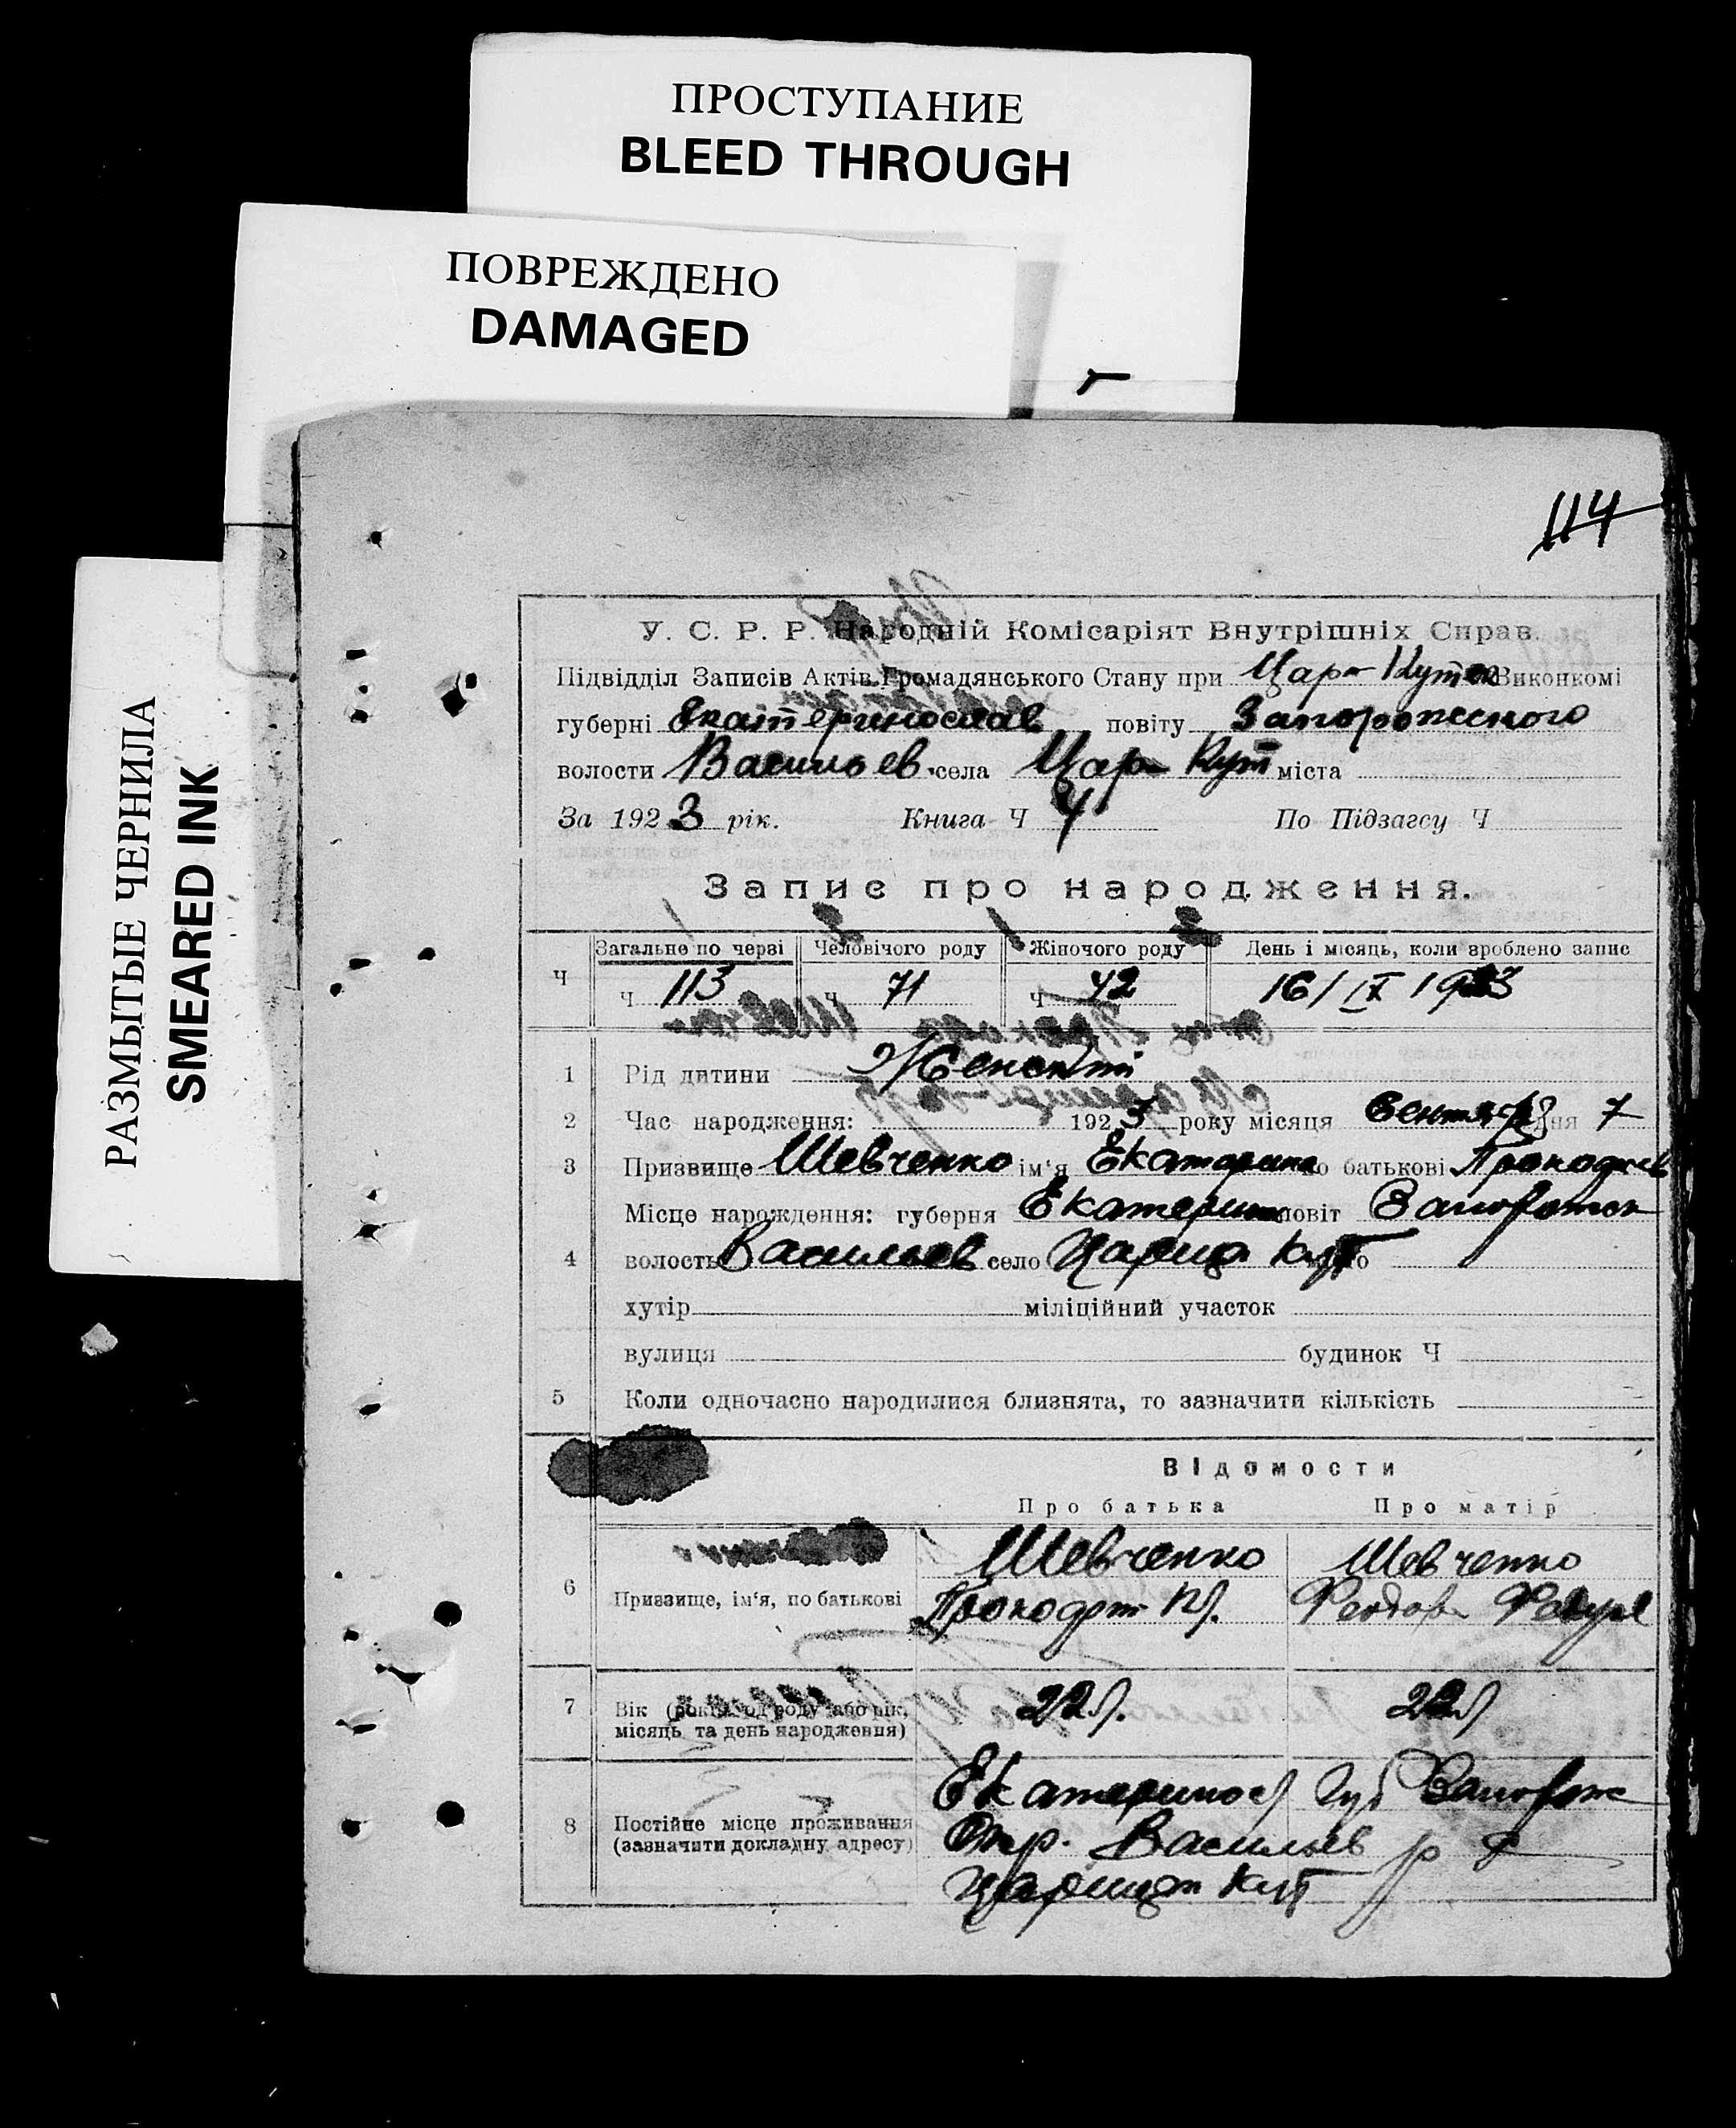 ПРОСТУПАНИЕ
BLEED THROUGH
ПОВРЕЖДЕНО
DAMAGED
РАЗМЫТЫЕ ЧЕРНИЛА
SMEARED INK
114
У. С. Р. Р. Народній Комісаріят Внутрішніх Справ.
Підвідділ Записів Актів Громадянського Стану при Цар-Кутск Виконкомі
губерні Екатеринослав повіту Запорожского
волости Васильев. села Цар-Кут міста
За 1923 рік. Книга Ч 4 По Підзагсу Ч
Запис про народження.
Загальне по черзі Человічого роду Жіночого роду День і місяць, коли зроблено запис
Ч Ч 113 Ч 71 Ч 42 16/IX 1923
1 Рід дитини Женский
2 Час народження: 1923 року місяця Сентября дня 7
3 Призвище Шевченко ім'я Екатерина по батькові Прокофьев
Місце народження: губерня Екатерин повіт Запорожск
4 волость Васильев село Царицын Кут місто
хутір міліційний участок
вулиця будинок Ч
5 Коли одночасно народилися близнята, то зазначити кількість
Відомости
Про батька Про матір
Шевченко Шевченко
6 Призвище, ім'я, по батькові Прокофий Феодора
7 Вік (років од роду або рік,
місяць та день народження) 22 л. 22 л
Екатериносл Губ Запорож
8 Постійне місце проживання
(зазначити докладну адресу) Окр. Васильев р
Царицын Кут